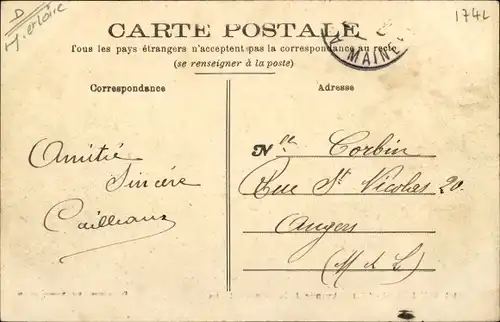 D
M. et Loire
1742
CARTE POSTALE
Tous les pays étrangers n'acceptent pas la correspondance au recto
(se renseigner à la poste)
MAINE
Correspondance
Adresse
Amitié
Sincère
Cailleaux
Mlle Corbin
Rue St Nicolas 20.
Angers
(M & L)